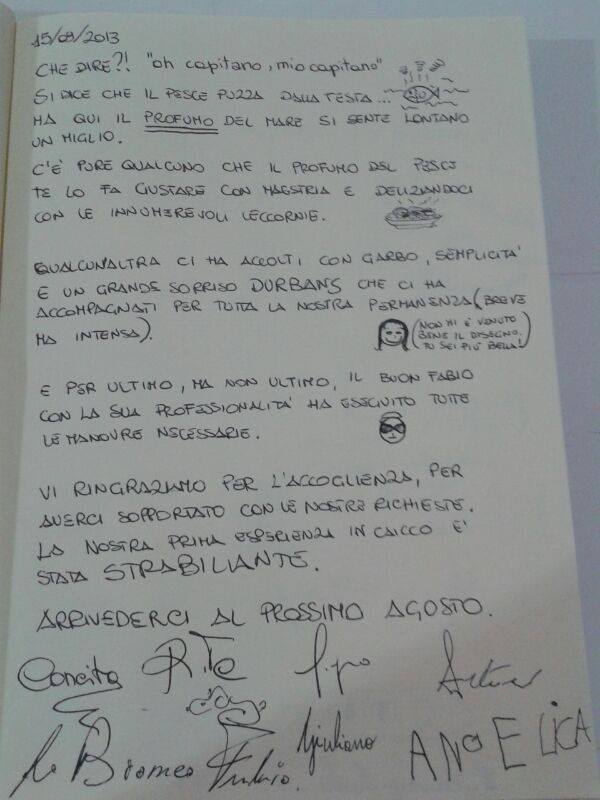 15/09/2013
CHE DIRE?! "oh capitano, mio capitano"
SI DICE CHE IL PESCE PUZZA DALLA TESTA...
MA QUI IL PROFUMO DEL MARE SI SENTE LONTANO
UN MIGLIO.
C'È PURE QUALCUNO CHE IL PROFUMO DEL PESCE
TE LO FA GUSTARE CON MAESTRIA E DELIZIANDOCI
CON LE INNUMEREVOLI LECCORNIE.
QUALCUN'ALTRA CI HA ACCOLTI CON GARBO, SEMPLICITA'
E UN GRANDE SORRISO DURBANS CHE CI HA
ACCOMPAGNATI PER TUTTA LA NOSTRA PERMANENZA (BREVE
MA INTENSA).
(NON MI È VENUTO
BENE IL DISEGNO.
TU SEI PIU' BELLA!)
E PER ULTIMO, MA NON ULTIMO, IL BUON FABIO
CON LA SUA PROFESSIONALITA' HA ESEGUITO TUTTE
LE MANOVRE NECESSARIE.
VI RINGRAZIAMO PER L'ACCOGLIENZA, PER
AVERCI SOPPORTATO CON LE NOSTRE RICHIESTE.
LA NOSTRA PRIMA ESPERIENZA IN CAICCO E'
STATA STRABILIANTE.
ARRIVEDERCI AL PROSSIMO AGOSTO.
Concita
Giuliano
ANGELICA